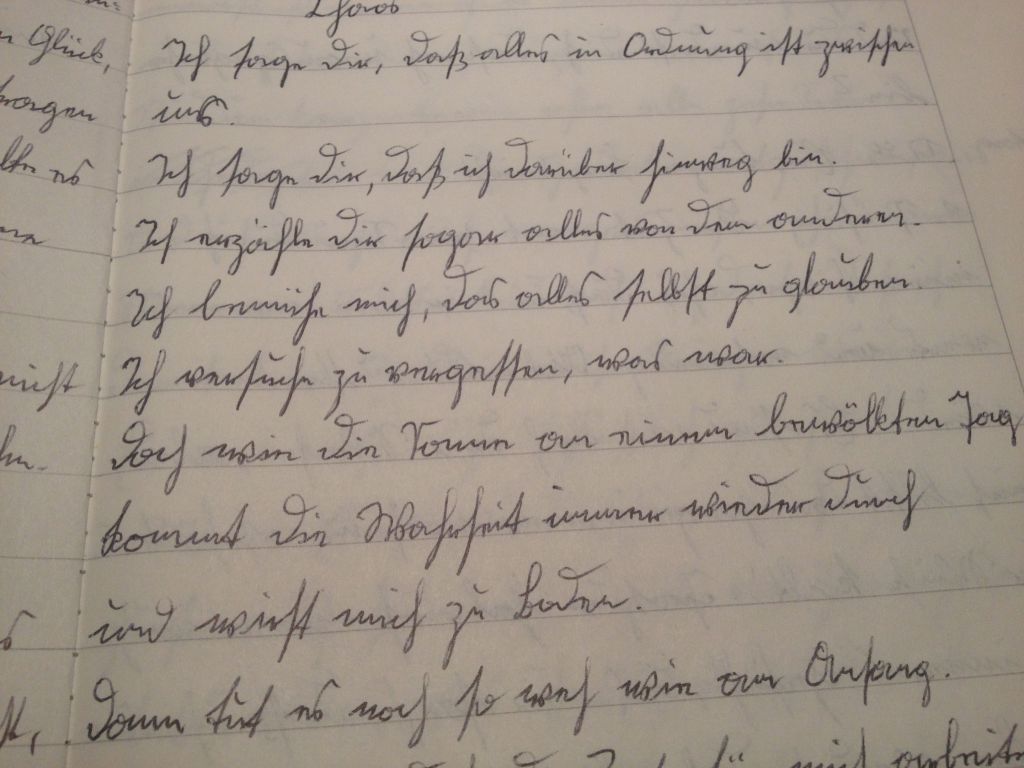 Chaos
Glück,
Ich sage dir, daß alles in Ordnung ist zwischen
uns.
Ich sage dir, daß ich darüber hinweg bin.
es
Ich erzähle dir sogar alles von dem anderen.
Ich bemühe mich, das alles selbst zu glauben.
nicht
Ich versuche zu vergessen, was war.
Doch wie die Sonne an einem bewölkten Tag
kommt die Wahrheit immer wieder durch
und wirft mich zu Boden.
Dann tut es noch so weh wie am Anfang.
mich arbeite